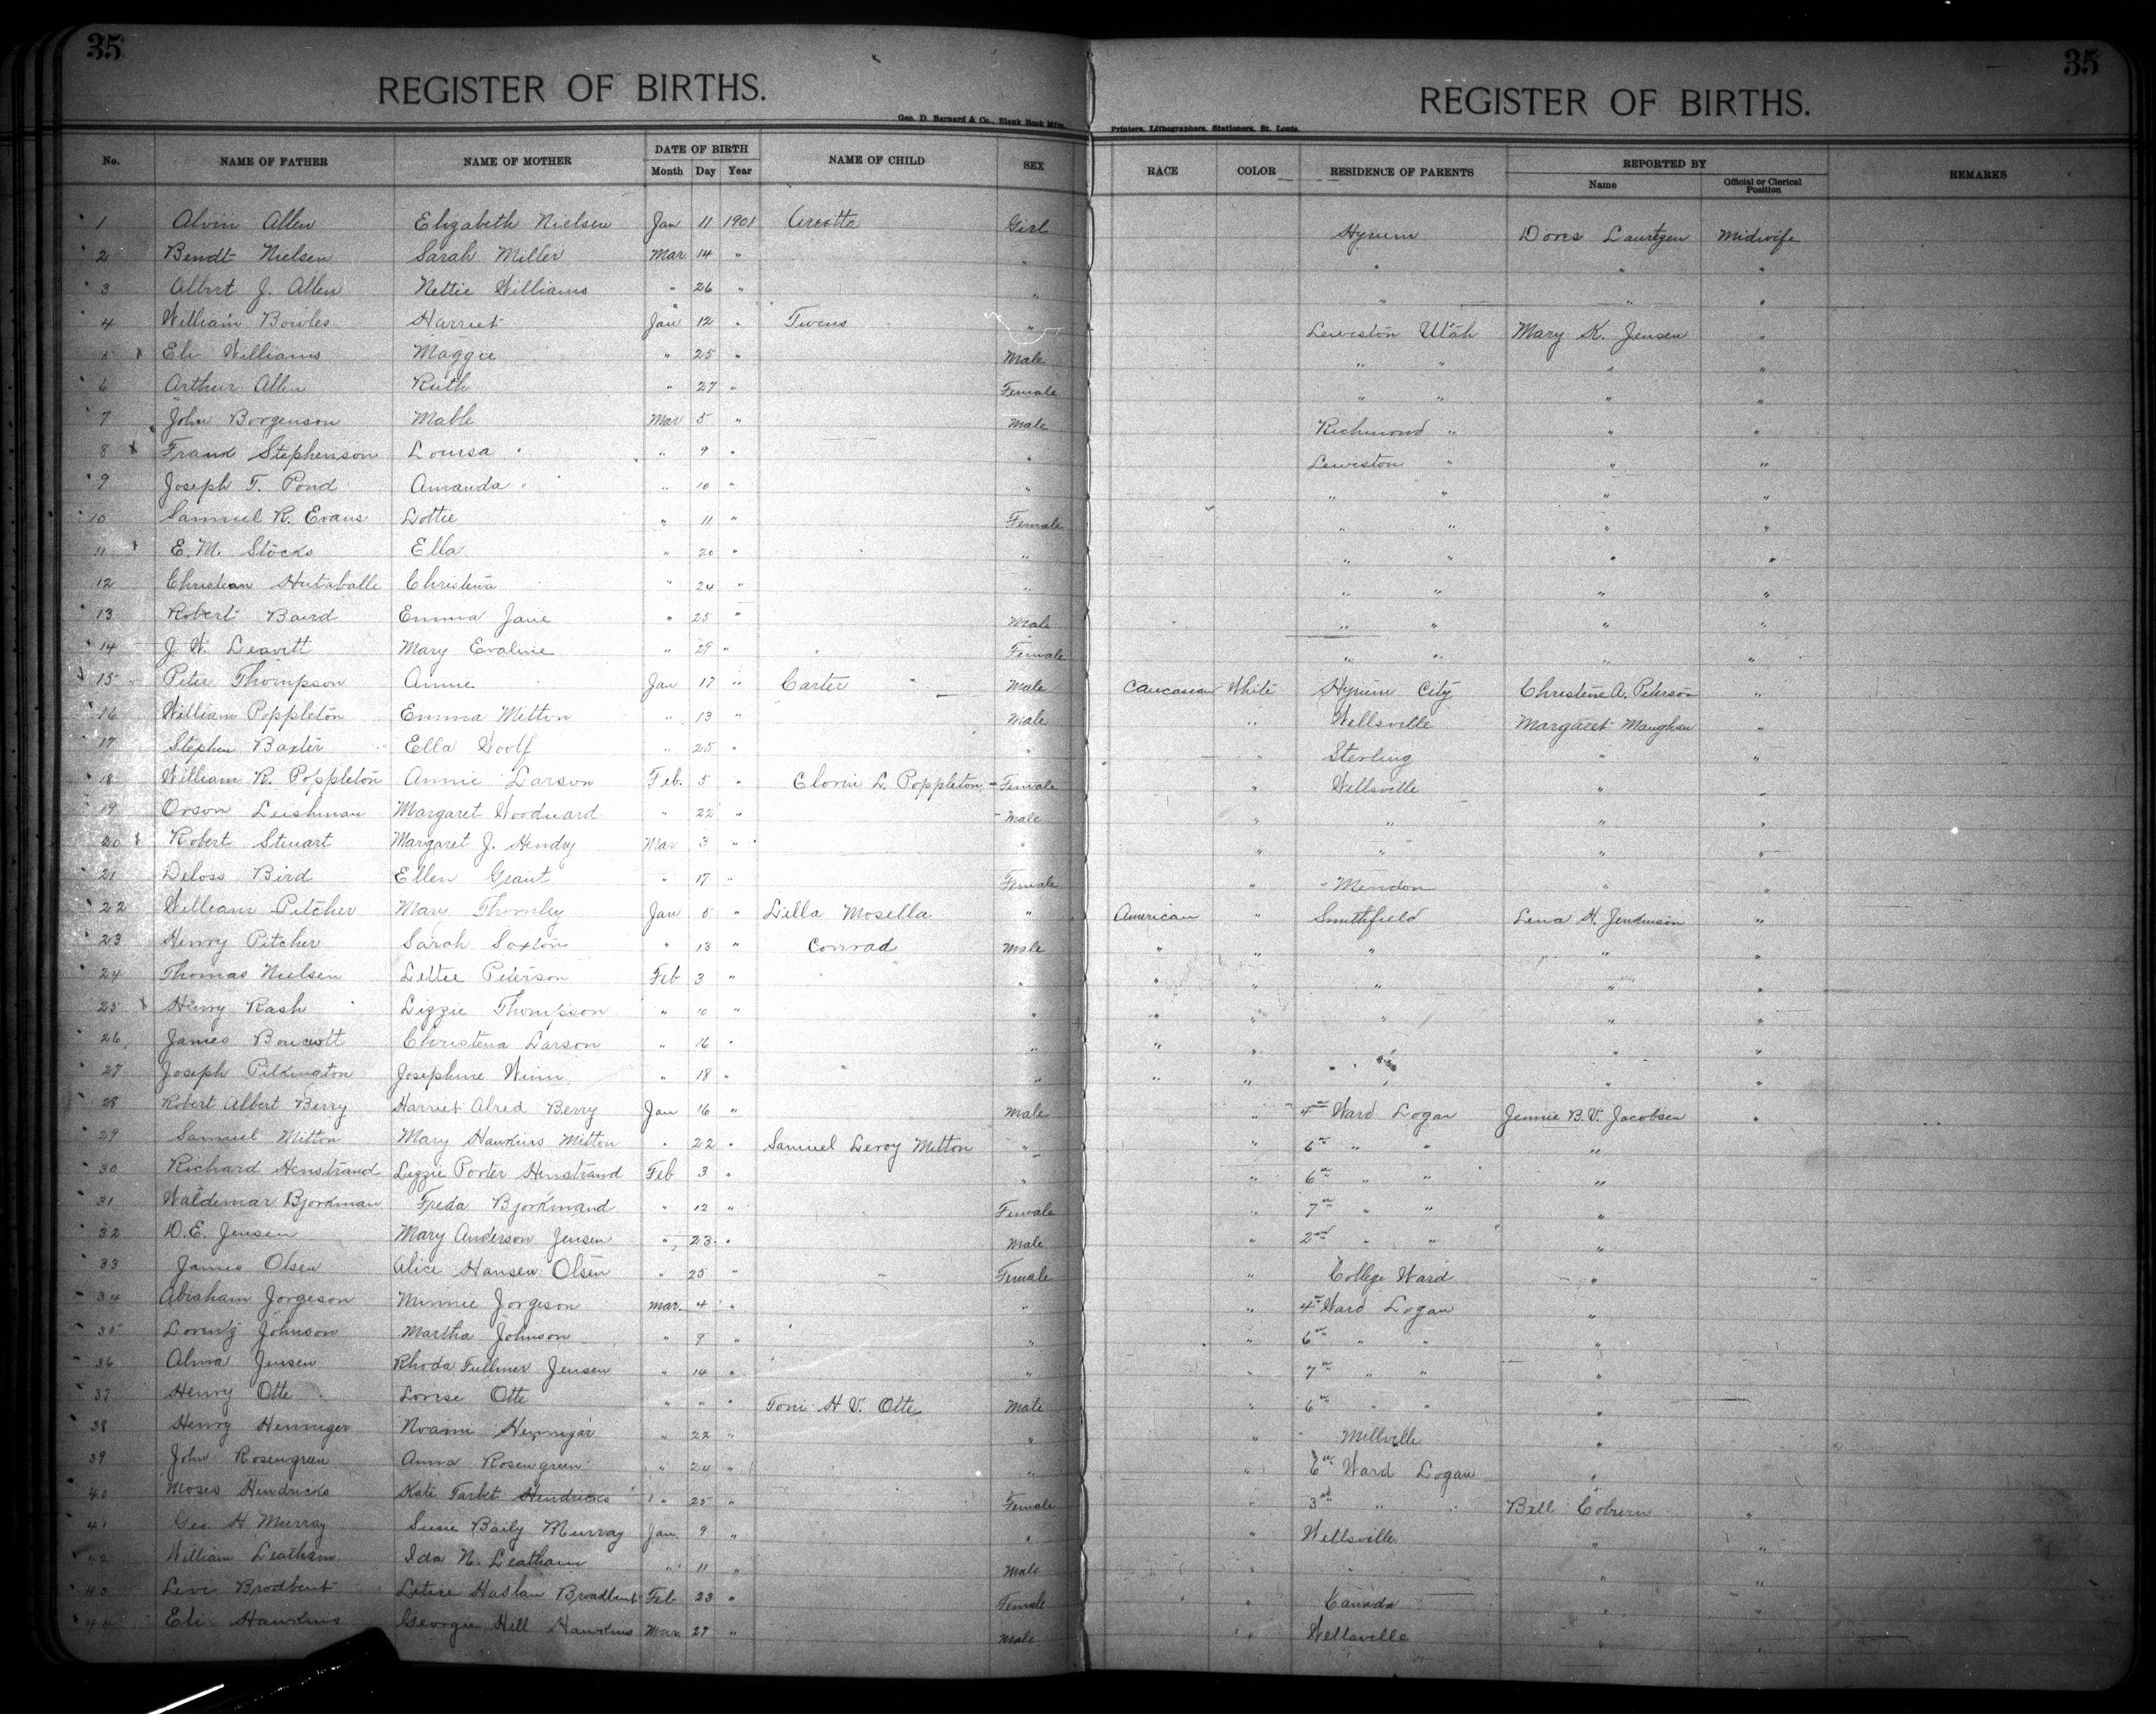 35 35
REGISTER OF BIRTHS. REGISTER OF BIRTHS.
Geo. D. Barnard & Co., Blank Book Mfrs. Printers, Lithographers, Stationers, St. Louis.
No. NAME OF FATHER NAME OF MOTHER DATE OF BIRTH NAME OF CHILD SEX RACE COLOR RESIDENCE OF PARENTS REPORTED BY REMARKS
Month Day Year Name Official or Clerical Position
1 Alvin Allen Elizabeth Nielsen Jan 11 1901 Girl Hyrum Lauritzen Midwife
2 Bendt Nielsen Sarah Miller Mar 14 " " " " "
3 Albert J. Allen Nettie Williams " 26 " " " " "
4 William Bowles Harriet Jan 12 " Twins " Lewiston Utah Mary K. Jensen "
5 Eli Williams Maggie " 25 " Male " " " "
6 Arthur Allen Ruth " 27 " Female " " " "
7 John Borgenson Mable Mar 5 " Male Richmond " " "
8 Frank Stephenson Louisa " 9 " " Lewiston " " "
9 Joseph T. Pond Amanda " 10 " " " " " "
10 Samuel R. Evans Lottie " 11 " Female " " " "
11 E. M. Stocks Ella " 20 " " " " " "
12 Christian Christina " 24 " " " " " "
13 Robert Baird Emma Jane " 25 " Male " " " "
14 J W. Leavitt Mary Evaline " 29 " Female " " " "
15 Peter Thompson Annie Jan 17 " Carter Male Caucasian White Hyrum City Christene A. Peterson "
16 William Poppleton Emma Mitton " 13 " Male " Wellsville Margaret Maughan "
17 Stephen Baxter Ella Woolf " 25 " " " Sterling " "
18 William R. Poppleton Annie Larson Feb. 5 " L. Poppleton Female " Wellsville " "
19 Orson Leishman Margaret Woodward " 22 " Male " " " "
20 Robert Stewart Margaret J. Hendry Mar 3 " " " " " "
21 Deloss Bird Ellen Grant " 17 " Female " Mendon " "
22 William Pitcher Mary Thornley Jan 5 " Lilla Mosella " American " Smithfield Lena H. Jenkinson "
23 Henry Pitcher Sarah Saxton " 13 " Conrad Male " " " " "
24 Thomas Nielsen Lettie Peterson Feb 3 " " " " " " "
25 Henry Rash Lizzie Thompson " 10 " " " " " " "
26 James Christena Larson " 16 " " " " " " "
27 Joseph Pilkington Josephine Winn " 18 " " " " " " "
28 Robert Albert Berry Harriet Alred Berry Jan 16 " Male " 4th Ward Logan Jennie B. V. Jacobsen "
29 Samuel Mitton Mary Hawkins Mitton " 22 " Samuel Leroy Mitton " " 6th " " "
30 Richard Henstrand Lizzie Porter Henstrand Feb 3 " " " 6th " " "
31 Waldemar Bjorkman Freda Bjorkmand " 12 " Female " 7th " " "
32 D. E. Jensen Mary Anderson Jensen " 23 " Male " 2nd " " "
33 James Olsen Alice Hansen Olsen " 25 " Female " College Ward "
34 Abraham Jorgeson Minnie Jorgeson Mar. 4 " " " 4th Ward Logan "
35 Lorentz Johnson Martha Johnson " 9 " " " 6th " " "
36 Alma Jensen Rhoda Fullmer Jensen " 14 " " " 7th " " "
37 Henry Otte Lovise Otte " " " Toni H. V. Otte Male " 6th " " "
38 Henry Henniger Noami Hennigar " 22 " " " Millville "
39 John Rosengreen Anna Rosengreen " 24 " " " 6th Ward Logan "
40 Moses Hendricks Kate Tarbet Hendricks " 25 " Female " 3rd " " Bell Coburn "
41 Geo H Murray Susie Baily Murray Jan. 9 " " " Wellsville " "
42 William Leatham Ida N. Leatham " 11 " Male " " " "
43 Levi Brodbent Haslam Broadbent Feb 23 " Female " Canada " "
44 Eli Hawkins Georgie Hill Hawkins Mar. 29 " Male " Wellsville " "